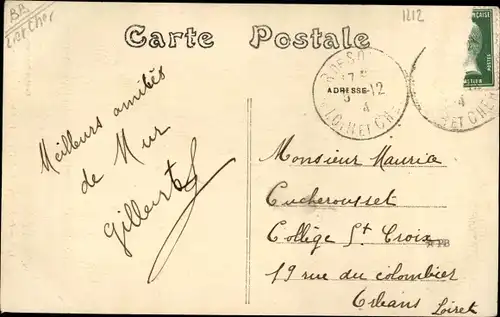 BB
Loir et Cher
1212
Carte Postale
ADRESSE
LOIR ET CHER
Meilleurs amitiés
de Mur
Gilberte
Monsieur Mauria
Cucherousset
Collège St Croix
19 rue du colombier
Orléans Loiret